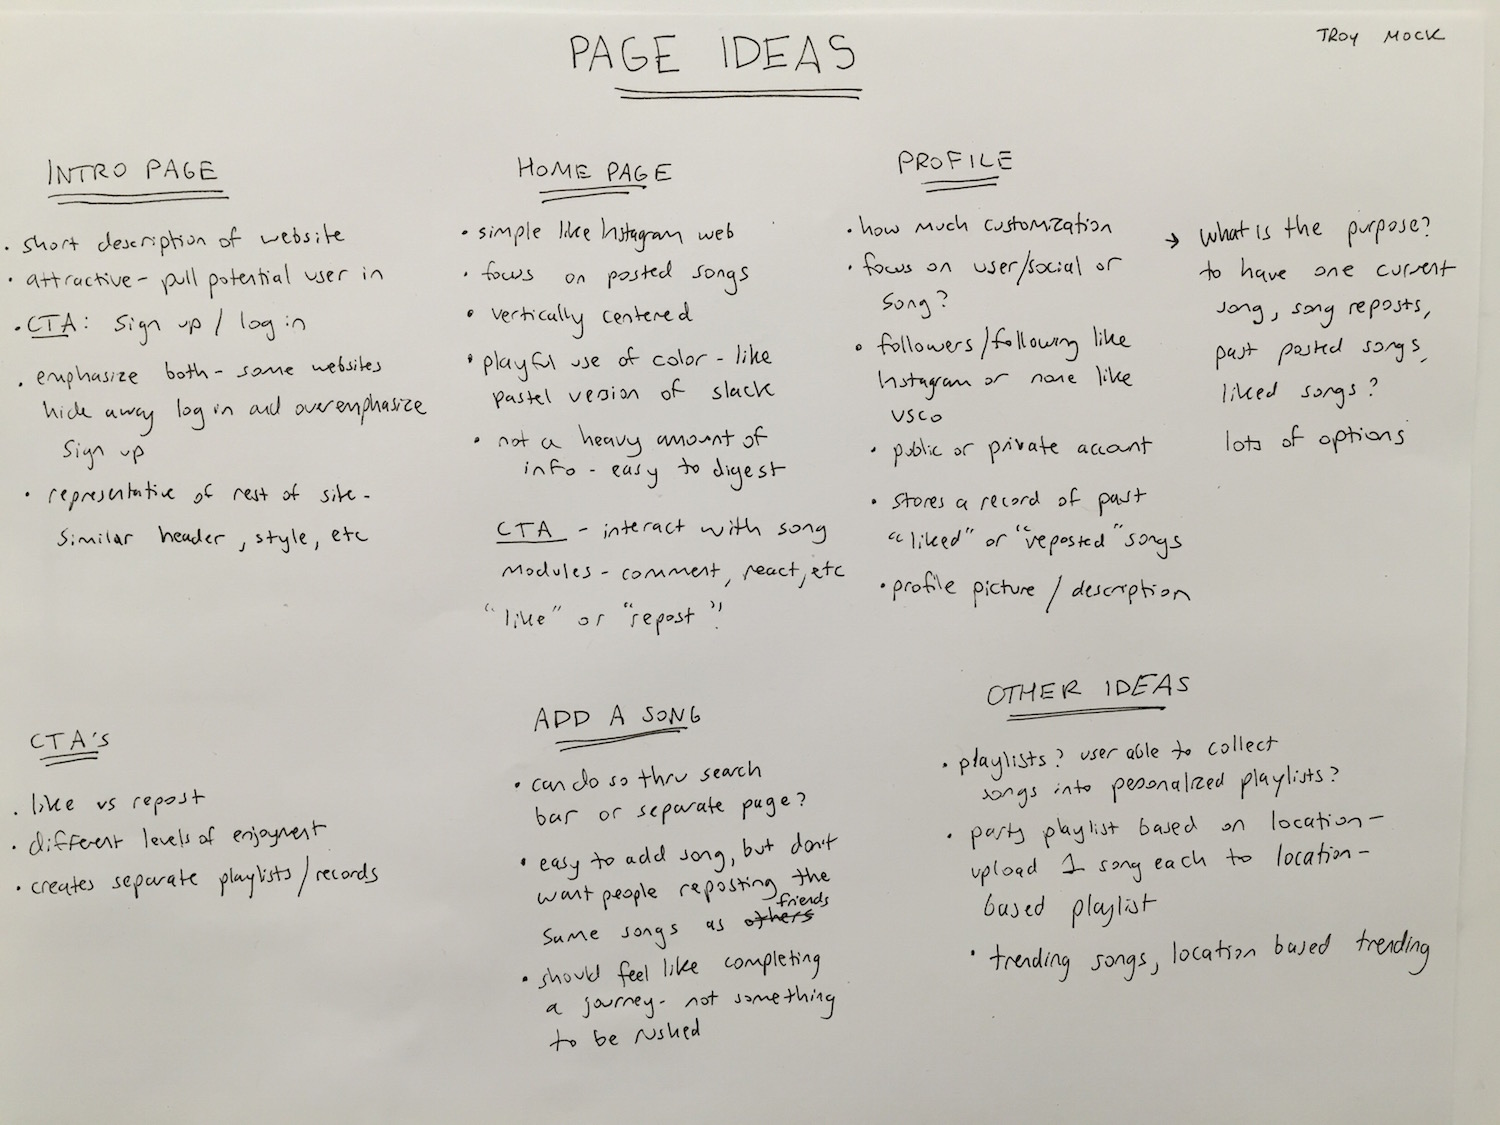 PAGE IDEAS
TROY MOCK
INTRO PAGE
• short description of website
• attractive - pull potential user in
• CTA: Sign up / log in
• emphasize both - some websites
hide away log in and overemphasize
Sign up
• representative of rest of site -
similar header, style, etc
HOME PAGE
• simple like Instagram web
• focus on posted songs
• vertically centered
• playful use of color - like
pastel version of slack
• not a heavy amount of
info - easy to digest
CTA - interact with song
modules - comment, react, etc
"like" or "repost"!
PROFILE
• how much customization
• focus on user/social or
song?
• followers/following like
Instagram or none like
VSCO
• public or private account
• stores a record of past
"liked" or "reposted" songs
• profile picture / description
→ what is the purpose?
to have one current
song, song reposts,
past posted songs,
liked songs?
lots of options
CTA's
• like vs repost
• different levels of enjoyment
• creates separate playlists/records
ADD A SONG
• can do so thru search
bar or separate page?
• easy to add song, but don't
want people reposting the
same songs as others friends
• should feel like completing
a journey - not something
to be rushed
OTHER IDEAS
• playlists? user able to collect
songs into pesonalized playlists?
• party playlist based on location -
upload 1 song each to location-
based playlist
• trending songs, location based trending